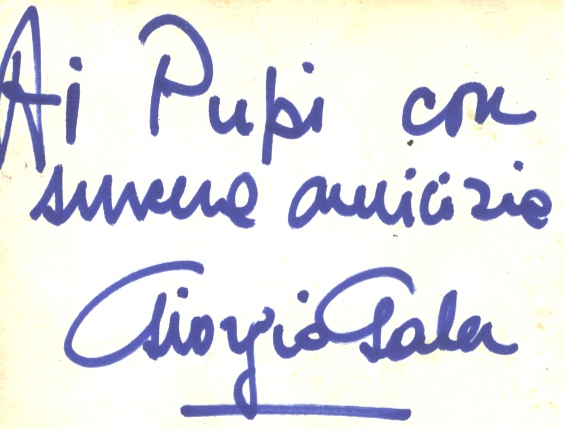 Ai Pupi con
sincera amicizia
Giorgio Gaber